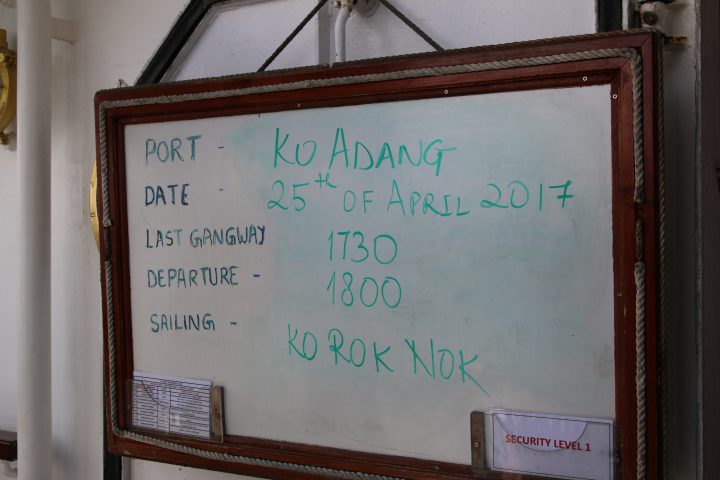 PORT - KO ADANG
DATE - 25th OF APRIL 2017
LAST GANGWAY 1730
DEPARTURE - 1800
SAILING - KO ROK NOK
SECURITY LEVEL 1